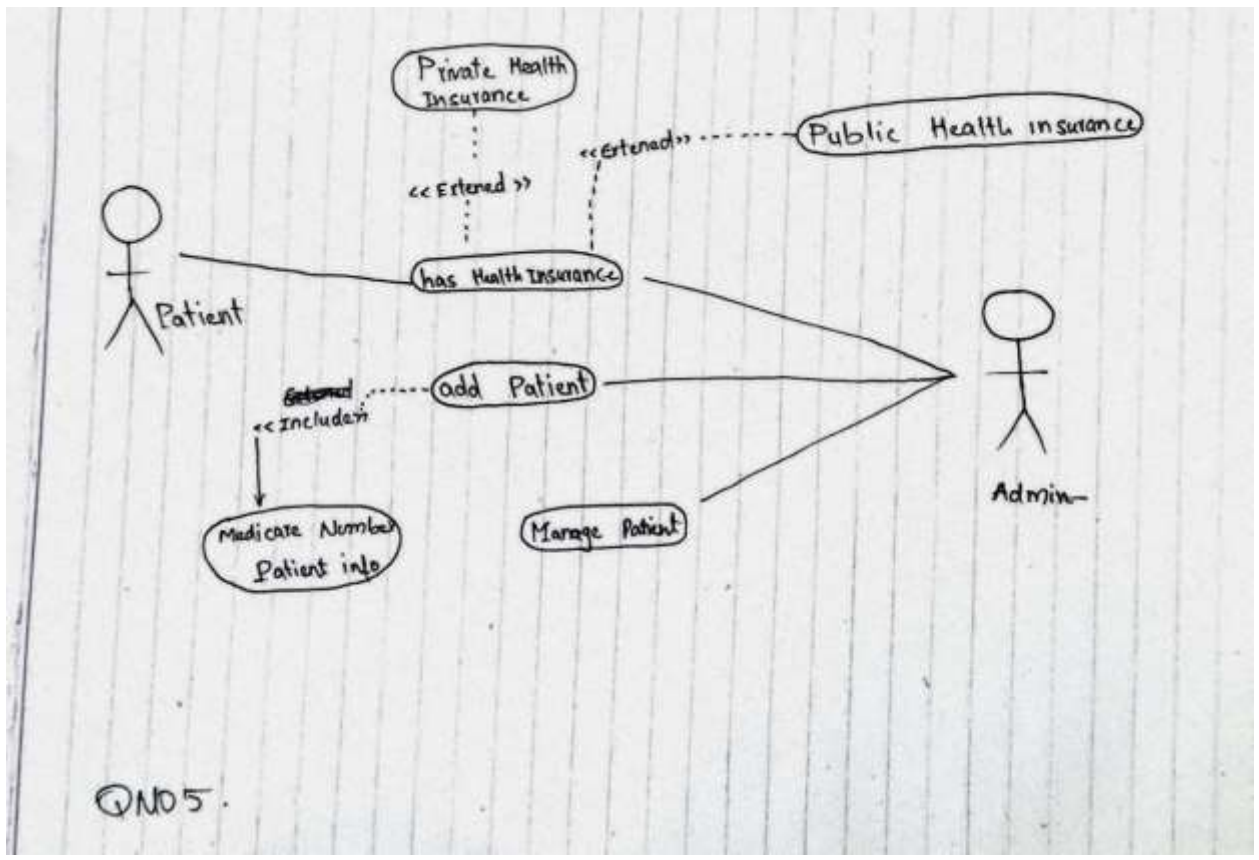 Private Health
Insurance
<<Extened>>
Public Health insurance
<<Extened>>
has Health Insurance
Patient
add Patient
<<Include>>
Medicare Number
Patient info
Manage Patient
Admin
QNO5.